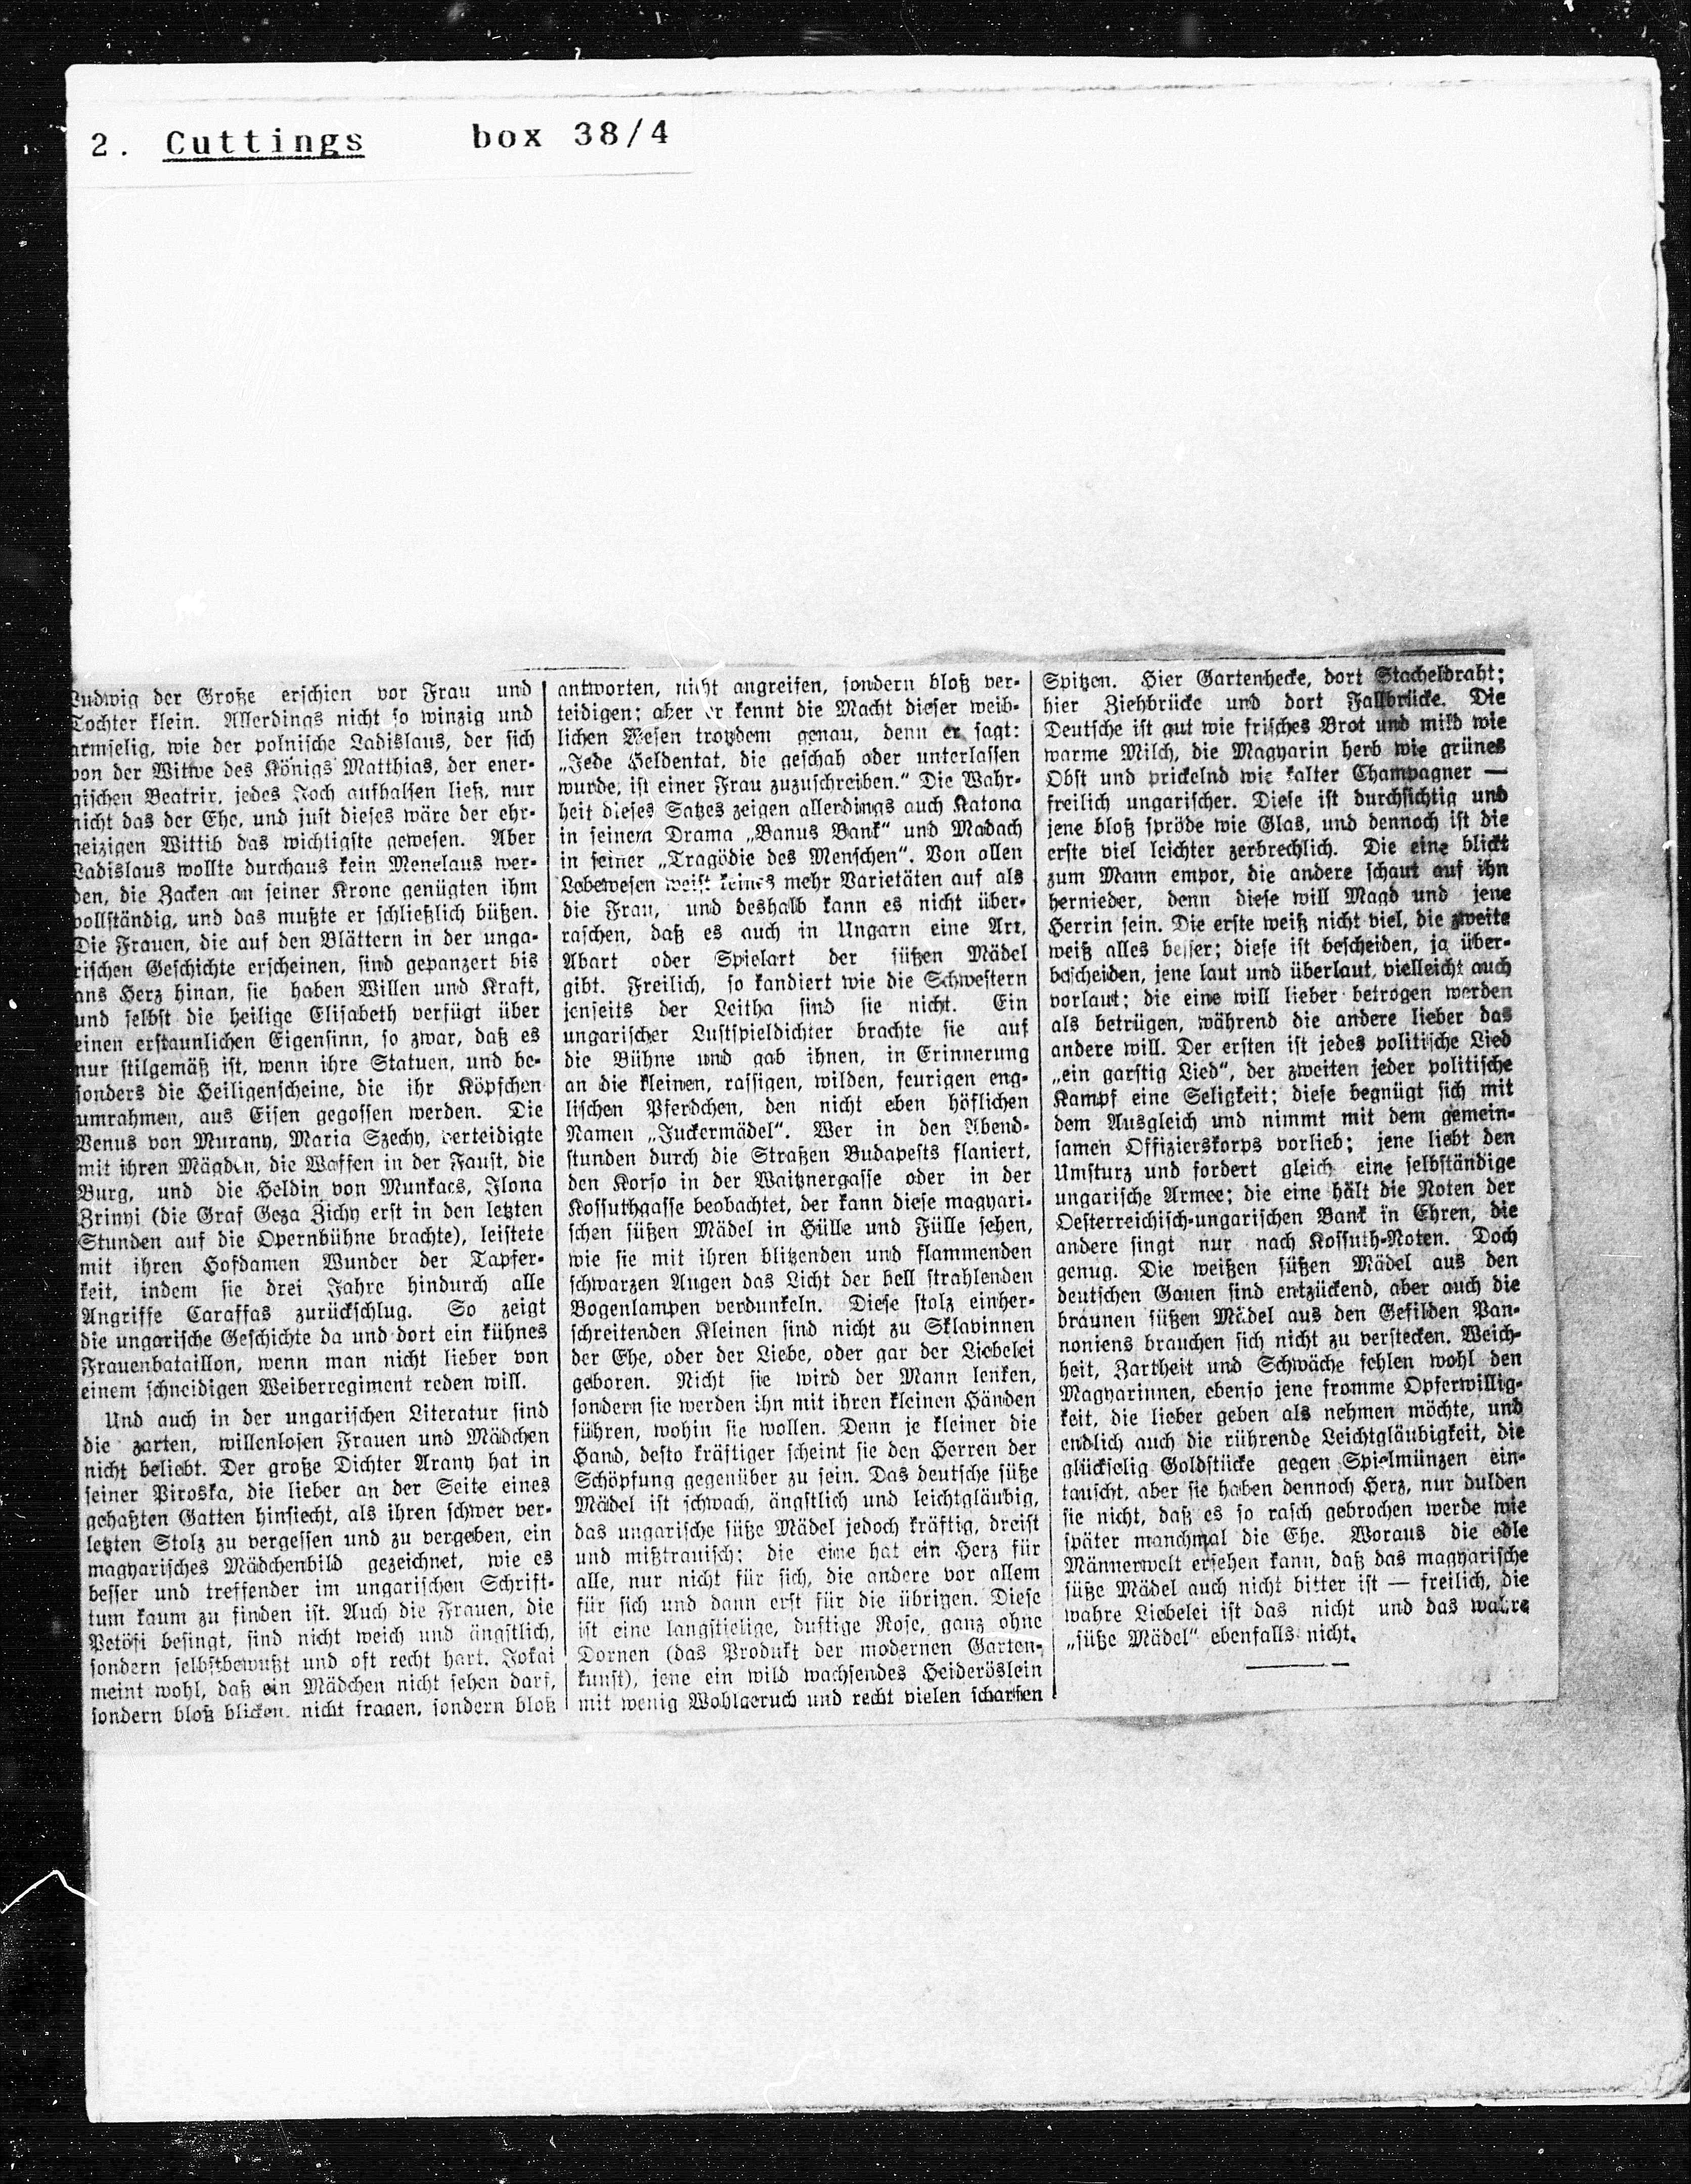 2. Cuttings box 38/4
Ludwig der Große erschien vor Frau und
Tochter klein. Allerdings nicht so winzig und
armselig, wie der polnische Ladislaus, der sich
von der Witwe des Königs Matthias, der ener-
gischen Beatrix, jedes Joch aufhalsen ließ, nur
nicht das der Ehe, und just dieses wäre der ehr-
geizigen Wittib das wichtigste gewesen. Aber
Ladislaus wollte durchaus kein Menelaus wer-
den, die Zacken an seiner Krone genügten ihm
vollständig, und das mußte er schließlich büßen.
Die Frauen, die auf den Blättern in der unga-
rischen Geschichte erscheinen, sind gepanzert bis
ans Herz hinan, sie haben Willen und Kraft,
und selbst die heilige Elisabeth verfügt über
einen erstaunlichen Eigensinn, so zwar, daß es
nur stilgemäß ist, wenn ihre Statuen, und be-
sonders die Heiligenscheine, die ihr Köpfchen
umrahmen, aus Eisen gegossen werden. Die
Venus von Murany, Maria Szechy, verteidigte
mit ihren Mägden, die Waffen in der Faust, die
Burg, und die Heldin von Munkacs, Ilona
Zrinyi (die Graf Geza Zichy erst in den letzten
Stunden auf die Opernbühne brachte), leistete
mit ihren Hofdamen Wunder der Tapfer-
keit, indem sie drei Jahre hindurch alle
Angriffe Caraffas zurückschlug. So zeigt
die ungarische Geschichte da und dort ein kühnes
Frauenbataillon, wenn man nicht lieber von
einem schneidigen Weiberregiment reden will.
Und auch in der ungarischen Literatur sind
die zarten, willenlosen Frauen und Mädchen
nicht beliebt. Der große Dichter Arany hat in
seiner Piroska, die lieber an der Seite eines
gehaßten Gatten hinsiecht, als ihren schwer ver-
letzten Stolz zu vergessen und zu vergeben, ein
magyarisches Mädchenbild gezeichnet, wie es
besser und treffender im ungarischen Schrift-
tum kaum zu finden ist. Auch die Frauen, die
Petöfi besingt, sind nicht weich und ängstlich,
sondern selbstbewußt und oft recht hart. Jokai
meint wohl, daß ein Mädchen nicht sehen darf,
sondern bloß blicken, nicht fragen, sondern bloß
antworten, nicht angreifen, sondern bloß ver-
teidigen; aber er kennt die Macht dieser weib-
lichen Wesen trotzdem genau, denn er sagt:
„Jede Heldentat, die geschah oder unterlassen
wurde, ist einer Frau zuzuschreiben.“ Die Wahr-
heit dieses Satzes zeigen allerdings auch Katona
in seinem Drama „Banus Bank“ und Madach
in seiner „Tragödie des Menschen“. Von allen
Lebewesen weist keines mehr Varietäten auf als
die Frau, und deshalb kann es nicht über-
raschen, daß es auch in Ungarn eine Art,
Abart oder Spielart der süßen Mädel
gibt. Freilich, so kandiert wie die Schwestern
jenseits der Leitha sind sie nicht. Ein
ungarischer Lustspieldichter brachte sie auf
die Bühne und gab ihnen, in Erinnerung
an die kleinen, rassigen, wilden, feurigen eng-
lischen Pferdchen, den nicht eben höflichen
Namen „Juckermädel“. Wer in den Abend-
stunden durch die Straßen Budapests flaniert,
den Korso in der Waitznergasse oder in der
Kossuthgasse beobachtet, der kann diese magyari-
schen süßen Mädel in Hülle und Fülle sehen,
wie sie mit ihren blitzenden und flammenden
schwarzen Augen das Licht der hell strahlenden
Bogenlampen verdunkeln. Diese stolz einher-
schreitenden Kleinen sind nicht zu Sklavinnen
der Ehe, oder der Liebe, oder gar der Liebelei
geboren. Nicht sie wird der Mann lenken,
sondern sie werden ihn mit ihren kleinen Händen
führen, wohin sie wollen. Denn je kleiner die
Hand, desto kräftiger scheint sie den Herren der
Schöpfung gegenüber zu sein. Das deutsche süße
Mädel ist schwach, ängstlich und leichtgläubig,
das ungarische süße Mädel jedoch kräftig, dreist
und mißtrauisch; die eine hat ein Herz für
alle, nur nicht für sich, die andere vor allem
für sich und dann erst für die übrigen. Diese
ist eine langstielige, duftige Rose, ganz ohne
Dornen (das Produkt der modernen Garten-
kunst), jene ein wild wachsendes Heideröslein
mit wenig Wohlgeruch und recht vielen scharfen
Spitzen. Hier Gartenhecke, dort Stacheldraht;
hier Ziehbrücke und dort Fallbrücke. Die
Deutsche ist gut wie frisches Brot und mild wie
warme Milch, die Magyarin herb wie grünes
Obst und prickelnd wie kalter Champagner —
freilich ungarischer. Diese ist durchsichtig und
jene bloß spröde wie Glas, und dennoch ist die
erste viel leichter zerbrechlich. Die eine blickt
zum Mann empor, die andere schaut auf ihn
hernieder, denn diese will Magd und jene
Herrin sein. Die erste weiß nicht viel, die zweite
weiß alles besser; diese ist bescheiden, ja über-
bescheiden, jene laut und überlaut, vielleicht auch
vorlaut; die eine will lieber betrogen werden
als betrügen, während die andere lieber das
andere will. Der ersten ist jedes politische Lied
„ein garstig Lied“, der zweiten jeder politische
Kampf eine Seligkeit; diese begnügt sich mit
dem Ausgleich und nimmt mit dem gemein-
samen Offizierskorps vorlieb; jene liebt den
Umsturz und fordert gleich eine selbständige
ungarische Armee; die eine hält die Noten der
Oesterreichisch-ungarischen Bank in Ehren, die
andere singt nur nach Kossuth-Noten. Doch
genug. Die weißen süßen Mädel aus den
deutschen Gauen sind entzückend, aber auch die
braunen süßen Mädel aus den Gefilden Pan-
noniens brauchen sich nicht zu verstecken. Weich-
heit, Zartheit und Schwäche fehlen wohl den
Magyarinnen, ebenso jene fromme Opferwillig-
keit, die lieber geben als nehmen möchte, und
endlich auch die rührende Leichtgläubigkeit, die
glückselig Goldstücke gegen Spielmünzen ein-
tauscht, aber sie haben dennoch Herz, nur dulden
sie nicht, daß es so rasch gebrochen werde wie
später manchmal die Ehe. Woraus die edle
Männerwelt ersehen kann, daß das magyarische
süße Mädel auch nicht bitter ist — freilich, die
wahre Liebelei ist das nicht und das wahre
„süße Mädel“ ebenfalls nicht.